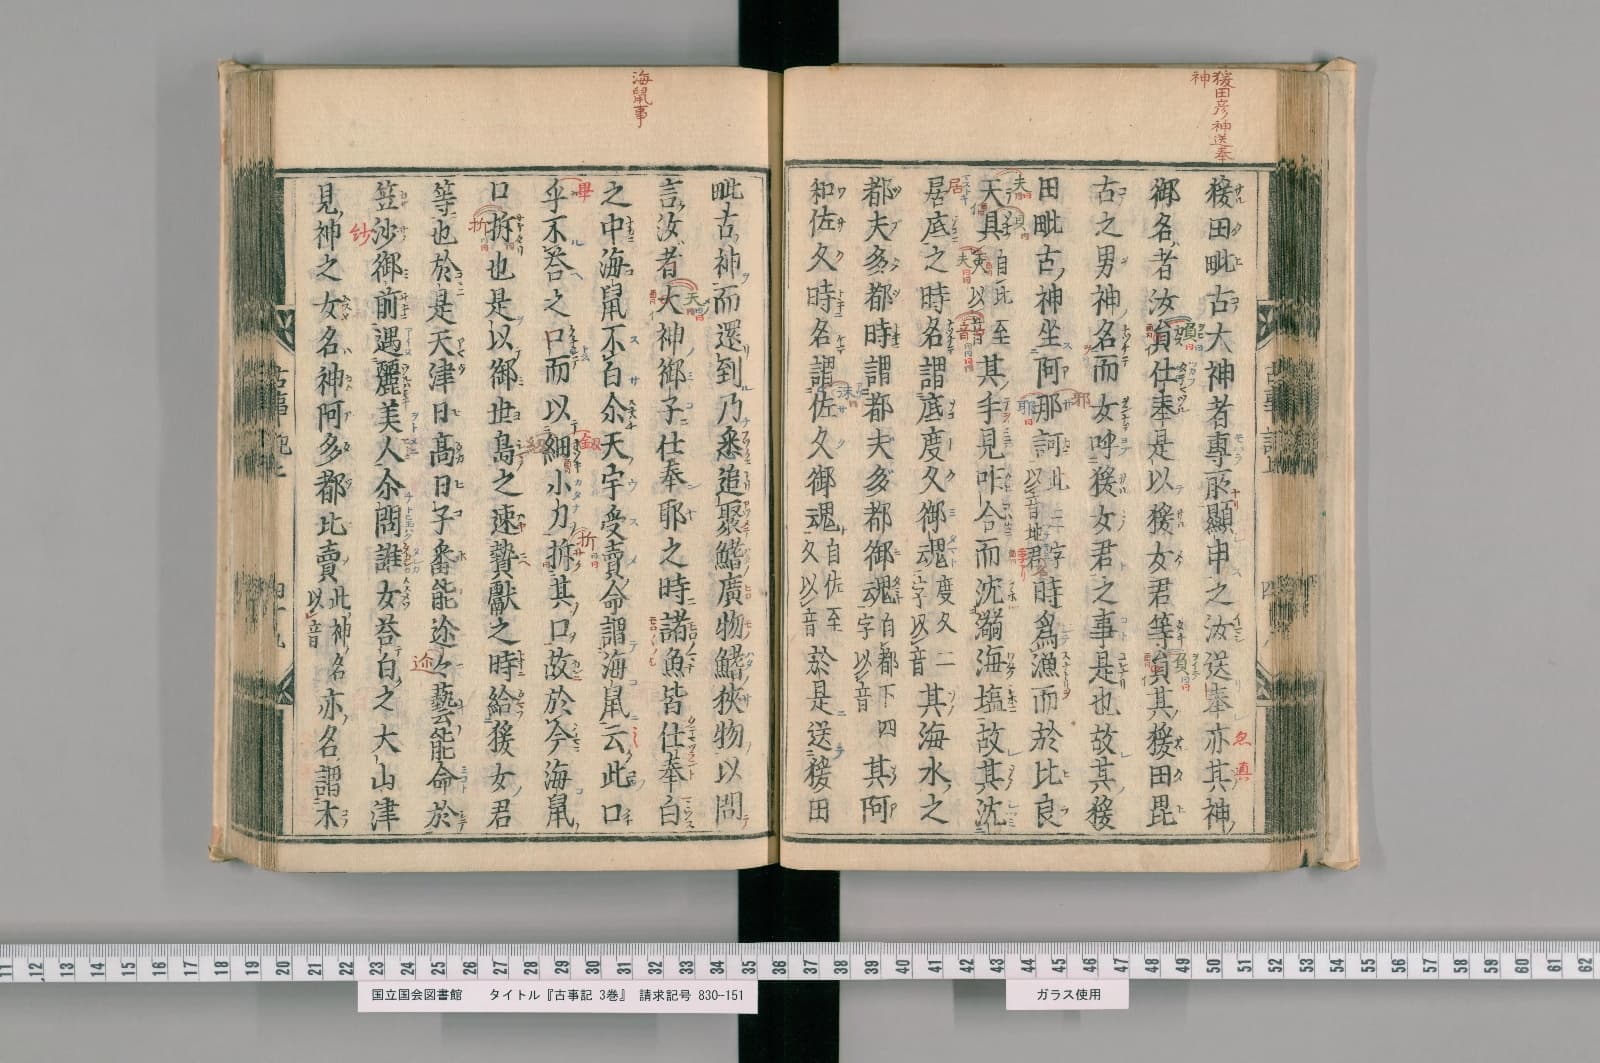 猨田彦神送奉
神
猨田毗古大神者專所顯申之汝送奉亦其神
御名者汝負仕奉是以猨女君等負其猨田毘
古之男神名而女呼猨女君之事是也故其猨
田毗古神坐阿那訶此三字以音地名時爲漁而於比良
夫貝自比至夫以音其手見咋合而沈溺海塩故其沈
居底之時名謂底度久御魂度久二字以音其海水之
都夫多都時謂都夫多都御魂自都下四字以音其阿
和佐久時名謂佐久御魂自佐至久以音於是送猨田
海鼠事
毗古神而還到乃悉追聚鰭廣物鰭狹物以問
言汝者大神御子仕奉耶之時諸魚皆仕奉白
之中海鼠不白尒天宇受賣命謂海鼠云此口
乎不荅之口而以細小刀拆其口故於今海鼠
口拆也是以御世島之速贄獻之時給猨女君
等也於是天津日高日子番能迩々藝能命於
笠沙御前遇麗美人尒問誰女荅白之大山津
見神之女名神阿多都比賣此神名以音亦名謂木
古事記上
国立国会図書館 タイトル『古事記 3巻』 請求記号 830-151
ガラス使用
11 12 13 14 15 16 17 18 19 20 21 22 23 24 25 26 27 28 29 30 31 32 33 34 35 36 37 38 39 40 41 42 43 44 45 46 47 48 49 50 51 52 53 54 55 56 57 58 59 60 61 62